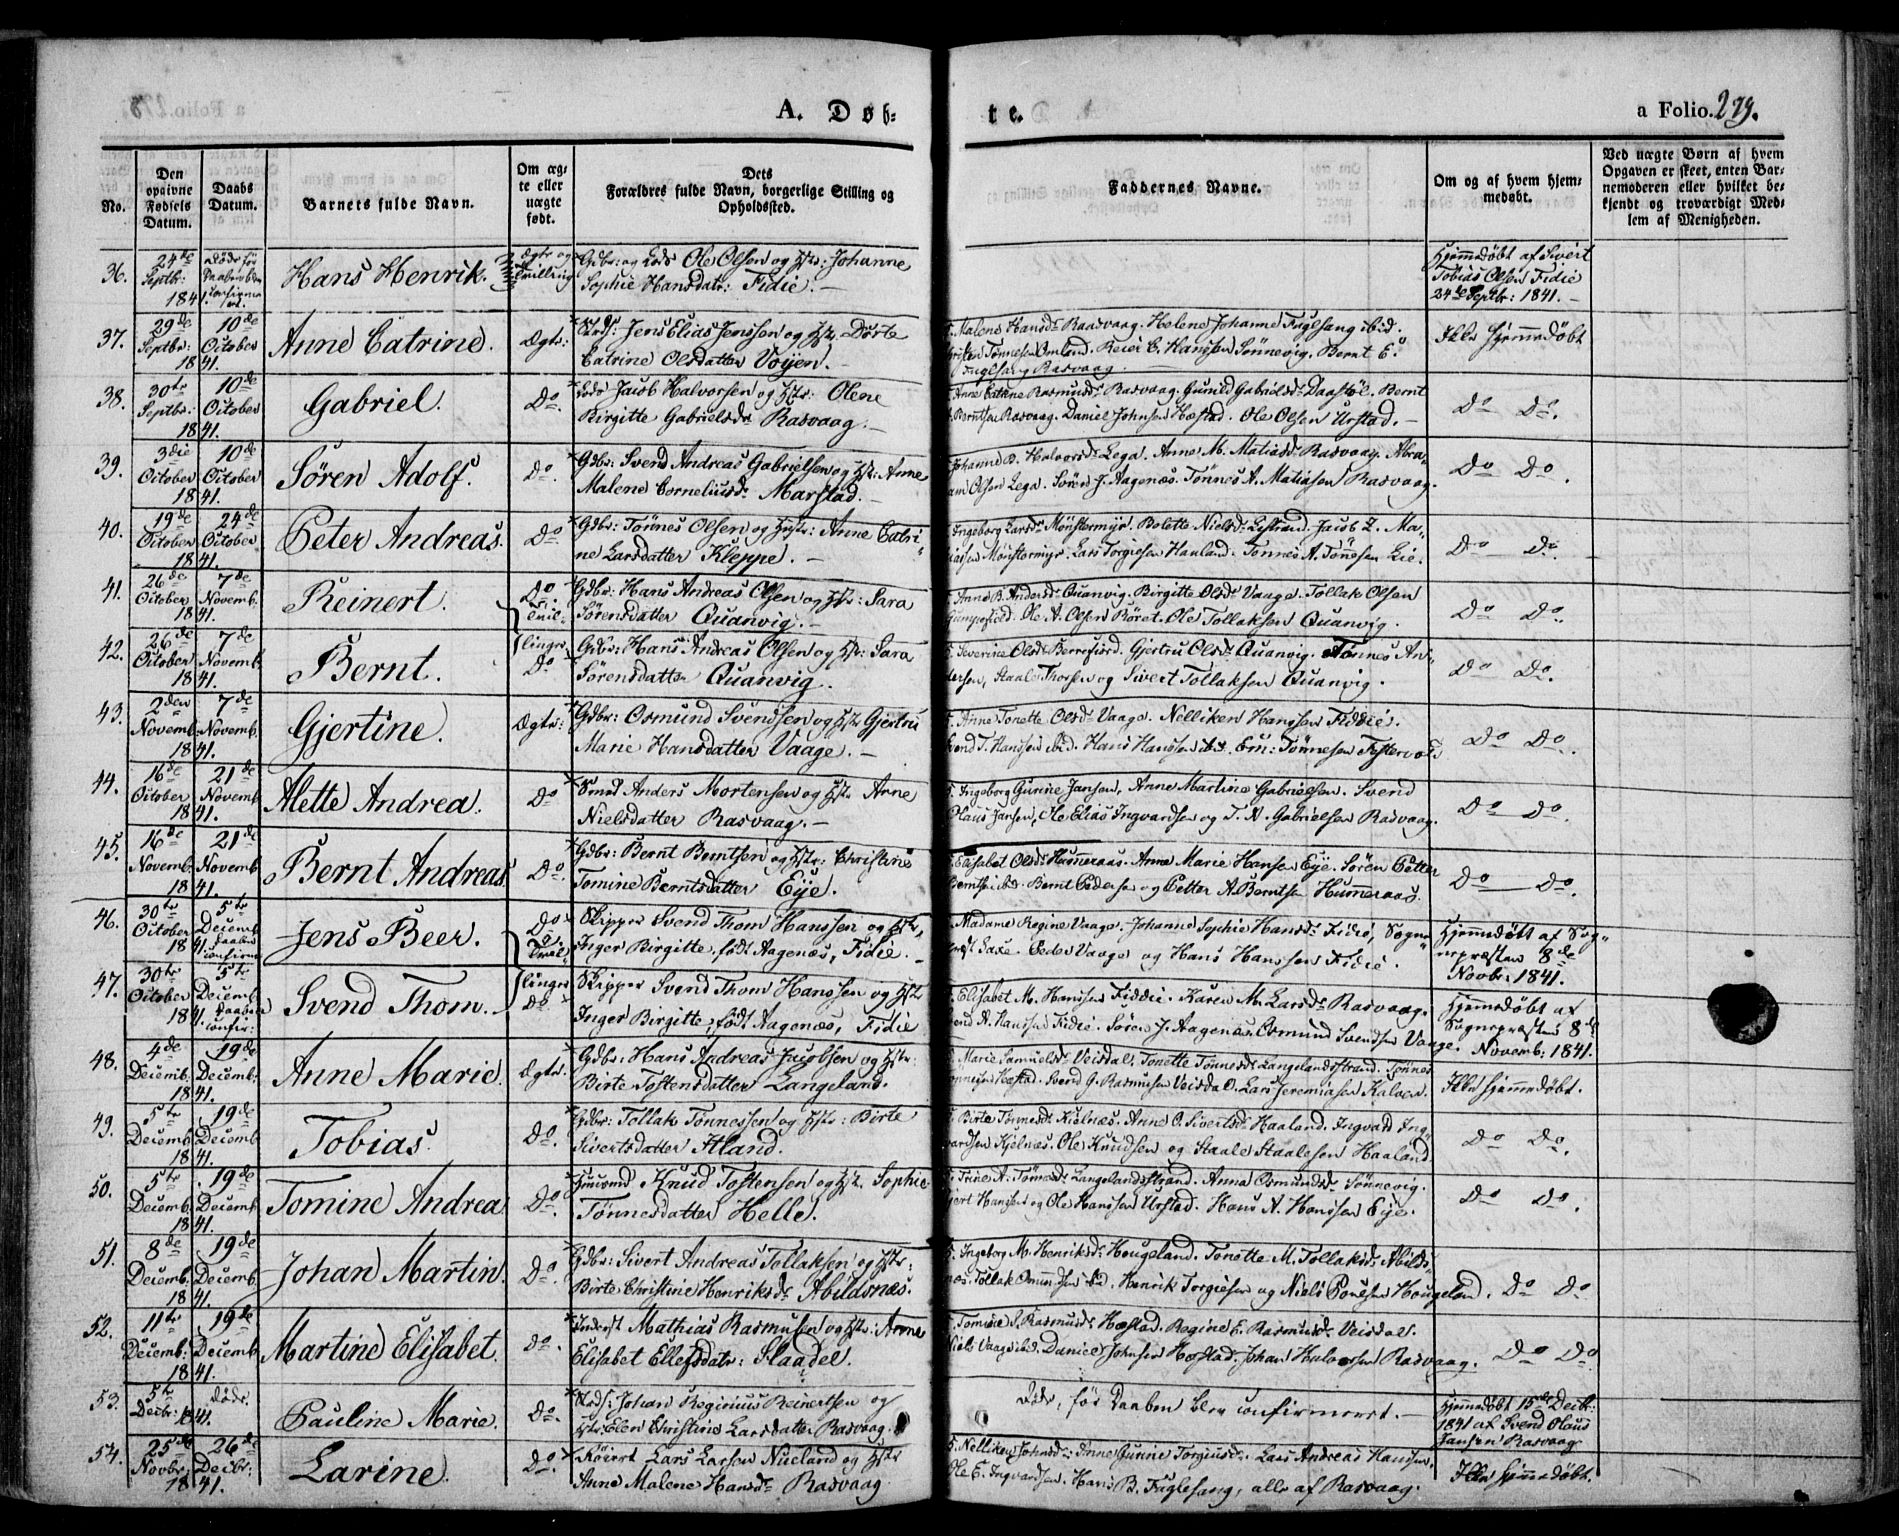 A. Døb-
te.
a Folio. 279.
No.
Den opgivne Fødsels Datum.
Daabs Datum.
Barnets fulde Navn.
Om ægte eller uægte født.
Dets Forældres fulde Navn, borgerlige Stilling og Opholdssted.
Faddernes Navne.
Om og af hvem hjemmedøbt.
Ved uægte Børn af hvem Opgaven er skeet, enten Barnemoderen eller hvilket bekjendt og troværdigt Medlem af Menigheden.
36. 24de Septbr: 1841. Hans Henrik. Ægte og Tvilling
Gdbr: og Lods Ole Olsen og Hstr: Johanne
Sophie Hansdatr: Fidie. —
Hjemmedøbt af Sivert
Tobias Olsen Fidie
24de Septbr: 1841. —
37. 29de Septbr: 1841. 10de October Anne Catrine. Ægte:
Jens Elias Jenssen og Hstr. Dorte
Catrine Olsdatter Vojen. —
Malene Hansdr Rasvaag. Helene Johanne Fuglesang ibid.
Tønnesen Omland. Reier C. Hanssen Sønnevig. Bernt E.
Fuglesang Rasvaag.
Ikke Hjemmedøbt
38. 30te Septbr: 1841. 10de October Gabriel. Do.
Lods Jacob Halvorsen og Hstr: Olene
Birgitte Gabrielsdr Rasvaag. —
Anne Catrine Rasmusdr Rasvaag. Gunild Gabrielsdr Daastøl. Bernt
Berntsen Rasvaag. Daniel Johnsen Hæstad. Ole Olsen Urstad. —
Do Do.
39. 3die October 1841. 10de October Søren Adolf. Do.
Gdbr: Svend Andreas Gabrielsen og Hstr: Anne
Malene Corneliusdr Marstad. —
Johanne B. Halvorsdr Lega. Anne M. Matiasdr Rasvaag. Abra-
am Olsen Lega. Søren J. Aagenæs. Tønnes A. Matiasen Rasvaag.
Do Do.
40. 19de October 1841. 24de October Peter Andreas. Do
Gdbr: Tønnes Olsen og Hstr: Anne Catri-
ne Larsdatter Kleppe. —
Ingeborg Larsdr Mønstermyr. Bolette Nielsdr Listrand. Jacob Z. Ma-
tiasen Mønstermyr. Lars Torgiesen Hauland. Tønnes A. Tønesen Lie.
Do Do.
41. 26de October 1841. 7de Novemb. Reinert. Do Tvil-
Gdbr: Hans Andreas Olsen og Hstr: Sara
Sørensdatter Quanvig. —
Anne B. Andersdr Quanvig. Birgitte Olsdr Vaage. Tollak Olsen
Ole A. Olsen Røret. Ole Tollaksen Quanvig.
Do Do.
42. 26de October 1841. 7de Novemb. Bernt. linger Do
Gdbr: Hans Andreas Olsen og Hstr: Sara
Sørensdatter Quanvig.
Severine Olsdr Berrefiord. Gjertru Olsdr Quanvig. Tønnes An-
dersen, Staale Thorsen og Sivert Tollaksen Quanvig.
Do Do.
43. 2den Novemb. 1841. 7de Novemb. Gjertine. Ægte:
Gdbr: Osmund Svendsen og Hstr Gjertru
Marie Hansdatter Vaage. —
Anne Tonette Olsdr Vaage. Nelliken Hanssen Fiddie.
Svend T. Hanssen ibid. Hans Hanssen ibid. Tønnesen
Do Do.
44. 16de October 1841. 21de Novemb. Alette Andrea. Do
Smed Anders Mortensen og Hstr Anne
Nielsdatter Rasvaag. —
Ingeborg Gurine Jansen, Anne Martine Gabrielsen. Svend
Olaus Jansen, Ole Elias Ingvardsen og T. A. Gabrielsen Rasvaag.
Do Do.
45. 16de Novemb. 1841. 21de Novemb. Bernt Andreas. Do.
Gdbr: Bernt Berntsen og Hstr: Christine
Tomine Berntsdatter Eije.
Elisabet Olsdr Hummeraas. Anne Marie Hansen Eije. Søren Petter
Berntsen ibid. Bernt Pedersen og Petter A. Berntsen Hummeraas.
Do Do.
46. 30te October 1841. 5te Decemb. Daaben confirm. Jens Beer. Do Tvil-
Skipper Svend Thom Hanssen og Hstr,
Inger Birgitte, født Aagenæs, Fidie. —
Madame Regine Vaage, Johanne Sophie Hansdr Fidie, Sogne-
præst Saxe. Peder Vaage og Hans Hanssen Fidie.
Hjemmedøbt af Sog-
nepræsten 8de
Novbr. 1841.
47. 30te October 1841. 5te Decemb. Daaben confir: Svend Thom. linger Do
Skipper Svend Thom Hanssen og Hstr
Inger Birgitte, født Aagenæs, Fidie
Elisabet M. Hanssen Fiddie. Karen M. Larsdr Rasvaag.
Svend A. Hanssen Fidie. Søren J. Aagenæs. Osmund Svendsen Vaage.
Hjemmedøbt af
Sognepræsten 8de
Novemb: 1841.
48. 4de Decemb. 1841. 19de Decemb: Anne Marie. Ægte.
Gdbr: Hans Andreas Jacobsen og Hstr
Birte Tostensdatter Langeland.
Marie Samuelsdr Veisdal. Tonette Tønnesdr Langelandsstrand. Tønnes
Tønnesen Hæstad. Svend G. Rasmusen Veisdal. Lars Jeremiasen Kalven.
Ikke Hjemmedøbt.
49. 5te Decemb. 1841. 19de Decemb. Tobias. Do.
Gdbr: Tollak Tønnessen og Hstr: Birte
Sivertsdatter Haland.
Birte Tønnesdr Kielnæs. Anne O. Sivertsdr Haaland. Ingvard Ing-
vardsen Kjelnæs. Ole Knudsen og Staale Staalesen Haaland
Do Do.
50. 5te Decemb. 1841. 19de Decemb. Tomine Andrea Do.
Huusmd Knud Tostensen og Hstr. Sophie
Tønnesdatter Helle.
Trine A. Tønnesdr Langelandsstrand. Anna Osmundsdr Sønnevig.
Hanssen og Ole Hanssen Urstad. Hans A. Hanssen Eije.
Do Do.
51. 8de Decemb. 1841. 19de Decemb. Johan Martin. Do.
Gdbr: Sivert Andreas Tollaksen og Hstr:
Birte Christine Henriksdr Abildsnæs.
Ingeborg M. Henriksdr Hougeland. Tonette M. Tollaksdr Abilds-
næs. Tollak Osmundsen ibid. Henrik Torgiesen og Niels Poulsen Hougeland.
Do Do
52. 11te Decemb: 1841. 19de Decemb Martine Elisabet. Do.
Inderst Mathias Rasmusen og Hstr: Anne
Elisabet Ellefsdatr: Slaadel.
Tomine S. Rasmusdr Hæstad. Regine E. Rasmusdr Veisdal.
Niels Vaage ibid. Daniel Johnsen Hæstad. Johan Halvorsen Rasvaag.
Do Do
53. 5te Decbr: 1841. døde. Pauline Marie. Do.
Johan Regionius Reinertsen og
Hstr: Elen Christine Larsdatter Rasvaag.
Døde, før Daaben blev confirmeret. —
Hjemmedøbt 15de Decbr:
1841 af Svend Olaus
Jansen Rasvaag
54. 25de Novbr: 1841. 26de Decbr: Larine. Do.
Lars Larsen Nueland og Hstr
Anne Malene Hansdr Rasvaag
Nelliken Johnsdr. Anne Gurine Torgiusdr. Lars Andreas Hanssen,
Ole E. Ingvardsen. Hans B. Fuglesang, alle af Rasvaag.
Ikke hjemmedøbt.